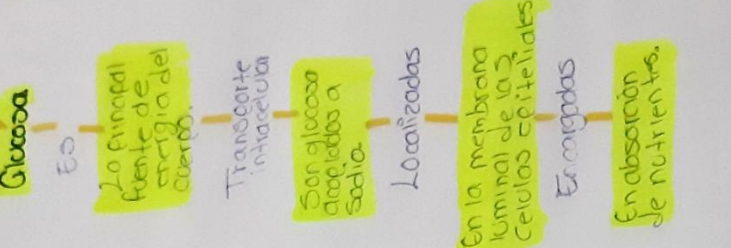 Glucosa
Es
La principal
fuente de
energia del
cuerpo.
Transporte
intracelular
Son glucosa
acoplados a
Sodio
Localizadas
En la membrana
luminal de las
Celulas epiteliales
Encargadas
En absorción
de nutrientes.